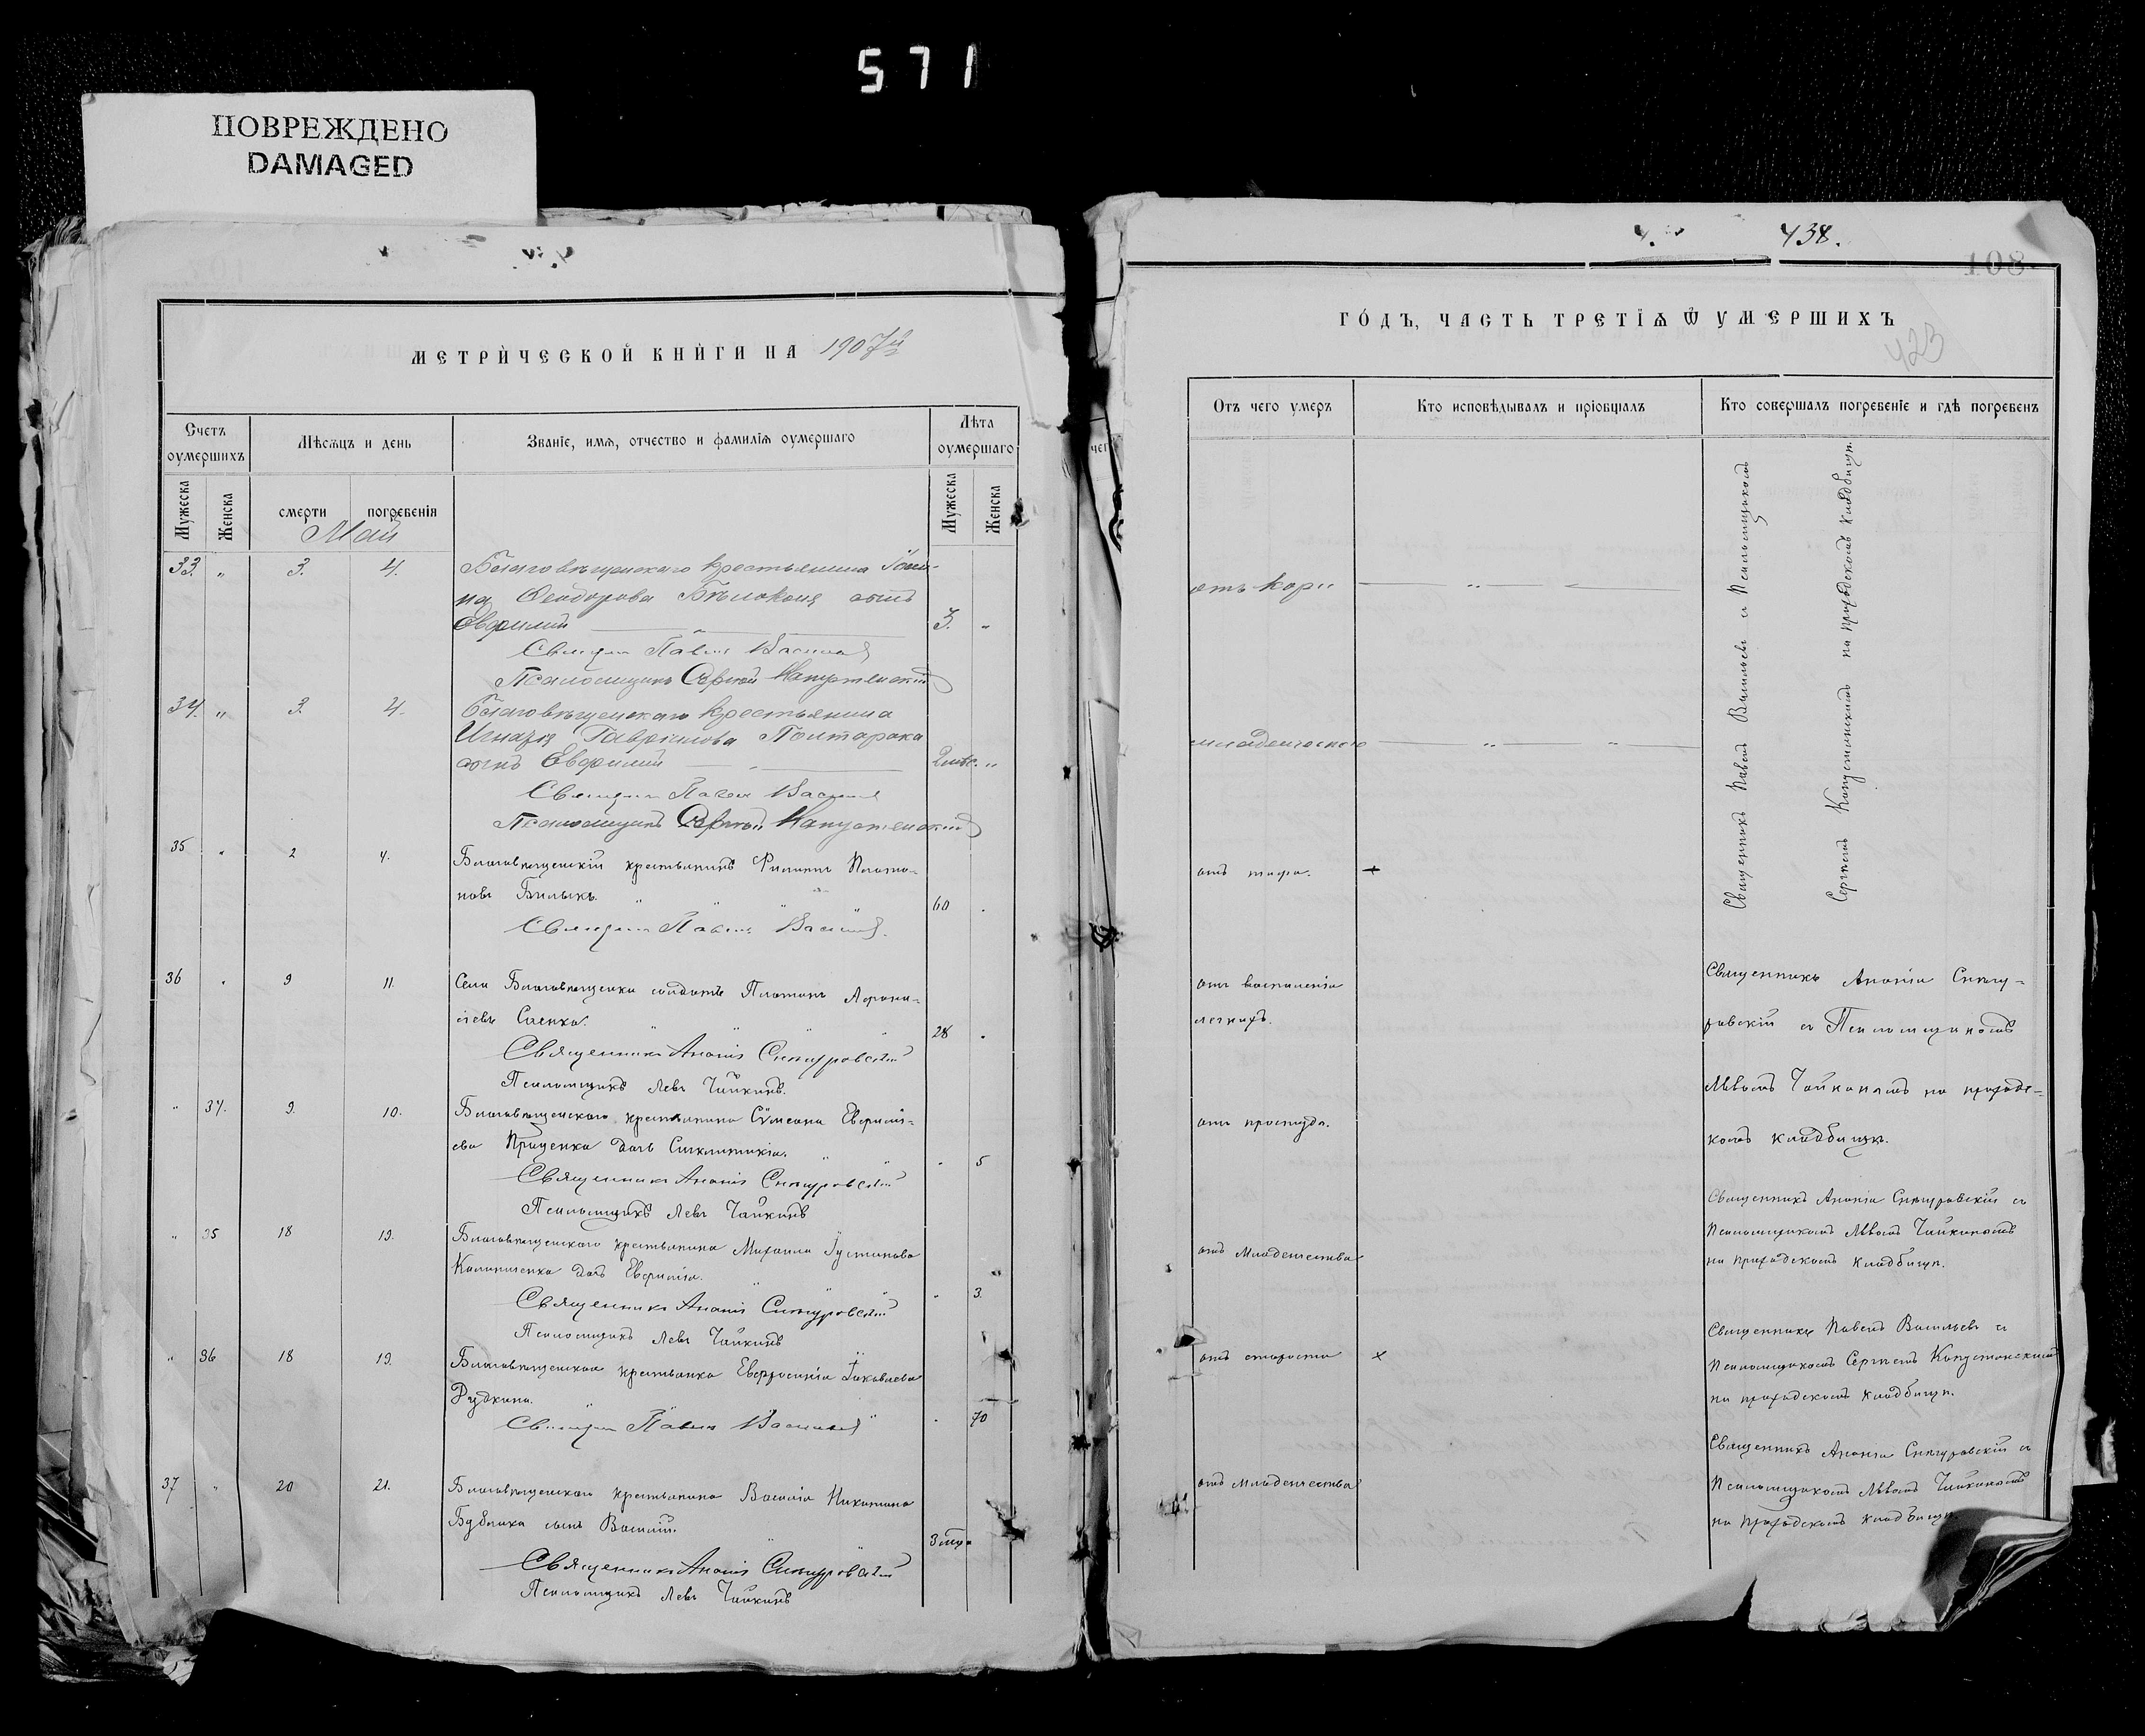 571
ПОВРЕЖДЕНО
DAMAGED
438.
108
423
МЕТРИЧЕСКОЙ КНИГИ НА 1907й
Счетъ оумершихъ
Мѣсѧцъ и день
Званіе, имѧ, отчество и фамиліѧ оумершаго
Лѣта оумершаго
Мужеска
Женска
смерти
погребенія
Мужеска
Женска
Май
33. „ 3. 4. Благовѣщенскаго крестьянина Іоан-
на Ѳеодорова Бѣлоконя сынъ
Евфимій 3. „
Священ Павелъ Васильев
Псаломщикъ Сергій Капустянскій
34. „ 3. 4. Благовѣщенскаго крестьянина
Игнатія Гавріилова Полтарака
сынъ Евфимій 2 мѣс. „
Священ Павелъ Васильев
Псаломщикъ Сергій Капустянскій
35 „ 2 4. Благовѣщенскій крестьянинъ Филиппъ Плато-
новъ Билыкъ. 60 „
Священ Павелъ Васильев
36 „ 9 11. Села Благовѣщенки солдатъ Платонъ Афона-
сіевъ Саенко. 28 „
Священникъ Ананія Снѣгуровскій
Псаломщикъ Левъ Чайкинъ.
„ 34. 9. 10. Благовѣщенскаго крестьянина Сѷмеона Евфиміе-
ева Прищенка дочь Синклитикія. „ 5
Священникъ Ананія Снѣгуровскій
Псаломщикъ Левъ Чайкинъ
„ 35 18 19. Благовѣщенскаго крестьянина Михаила Іустинова
Калиниченка дочь Евфимія. „ 3.
Священникъ Ананія Снѣгуровскій
Псаломщикъ Левъ Чайкинъ
„ 36 18 19. Благовѣщенская крестьянка Евфросинія Іаковлева
Рудкина. „ 70
Священ Павелъ Васильев
37 „ 20 21. Благовѣщенскаго крестьянина Василія Никитина
Бублика сынъ Василій. „
Священникъ Ананія Снѣгуровскій
Псаломщикъ Левъ Чайкинъ
ГО́ДЪ, ЧАСТЬ ТРЕТІѦ Ѿ УМЕРШИХЪ
Отъ чего умеръ
Кто исповѣдывалъ и пріобщалъ
Кто совершалъ погребеніе и гдѣ погребенъ
отъ кори
младенческой
отъ тифа. +
Священникъ Павелъ Васильевъ съ Псаломщикомъ
Сергѣемъ Капустянскимъ на приходскомъ кладбищѣ.
отъ воспаленія
легкихъ.
Священникъ Ананія Снѣгу-
ровскій съ Псаломщикомъ
Львомъ Чайкинымъ на приходс-
комъ кладбищѣ.
отъ простуды.
отъ младенчества
Священникъ Ананія Снѣгуровскій съ
Псаломщикомъ Львомъ Чайкинымъ
на приходскомъ кладбищѣ.
отъ старости +
Священникъ Павелъ Васильевъ съ
Псаломщикомъ Сергѣемъ Капустянскимъ
на приходскомъ кладбищѣ.
отъ младенчества
Священникъ Ананія Снѣгуровскій съ
Псаломщикомъ Львомъ Чайкинымъ
на приходскомъ кладбищѣ